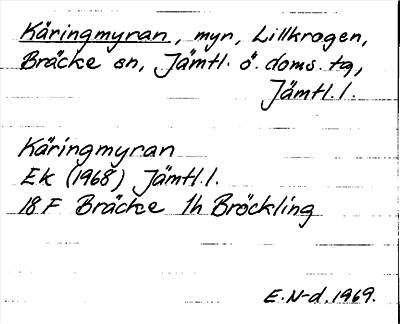 Käringmyran, myr, Lillkrogen,
Bräcke sn, Jämtl. ö. doms. tg,
Jämtl. l.
Käringmyran
Ek (1968) Jämtl. l.
18 F Bräcke 1h Bröckling
E. N-d. 1969.